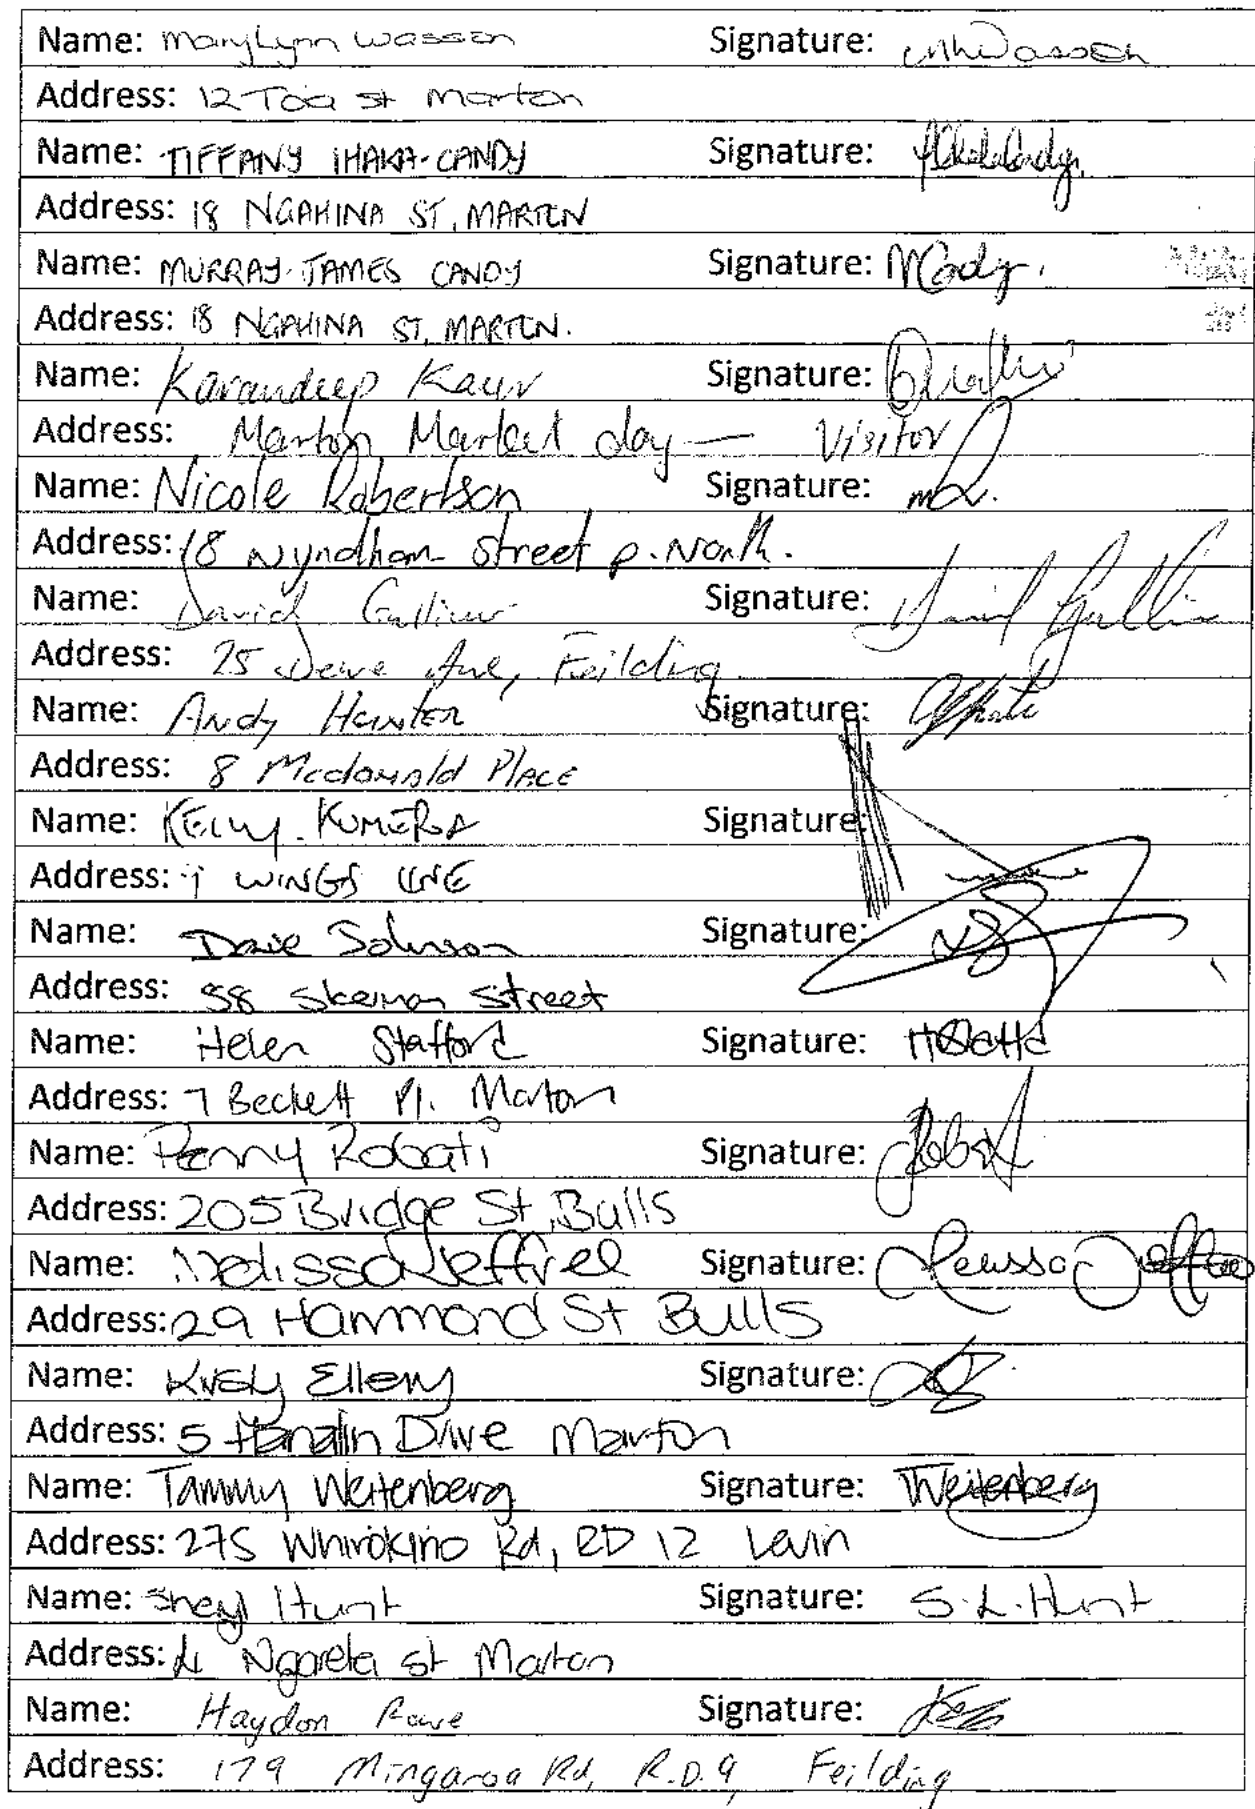 Name: MaryLynn Wassen Signature: MhWassen
Address: 12 Toia st Marton
Name: TIFFANY IHAKA-CANDY Signature:
Address: 18 NGAHINA ST, MARTON
Name: MURRAY JAMES CANDY Signature: MCandy.
Address: 18 NGAHINA ST, MARTON.
Name: Karandeep Kaur Signature:
Address: Marton Market day — Visitor
Name: Nicole Robertson Signature:
Address: 18 Wyndham Street P. North.
Name: David Signature: David
Address: 25 Ave, Feilding
Name: Andy Hunter Signature:
Address: 8 Mcdonald Place
Name: KELLY. KUMEROA Signature:
Address: WINGS LINE
Name: Dave Johnson Signature:
Address: 58 Skerman Street
Name: Helen Stafford Signature:
Address: 7 Beckett Pl. Marton
Name: Penny Robati Signature:
Address: 205 Bridge St, Bulls
Name: Melissa Jeffrel Signature:
Address: 29 Hammond St Bulls
Name: Kirsty Ellery Signature:
Address: 5 Hanalin Drive Marton
Name: Tammy Weitenberg Signature: TWeitenberg
Address: 275 Whirokino Rd, RD 12 Levin
Name: Sheryl Hunt Signature: S.L.Hunt
Address: 4 Ngareta st Marton
Name: Haydon Rowe Signature:
Address: 179 Mingaroa Rd, R.D.9, Feilding